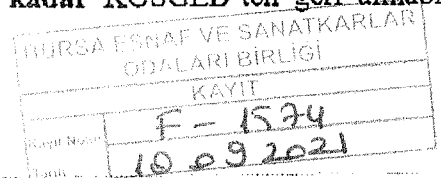 kadar KOSGEB'ten geri alınması
BURSA ESNAF VE SANATKARLAR
ODALARI BİRLİĞİ
KAYIT
Kayıt No
F - 1574
10 09 2021